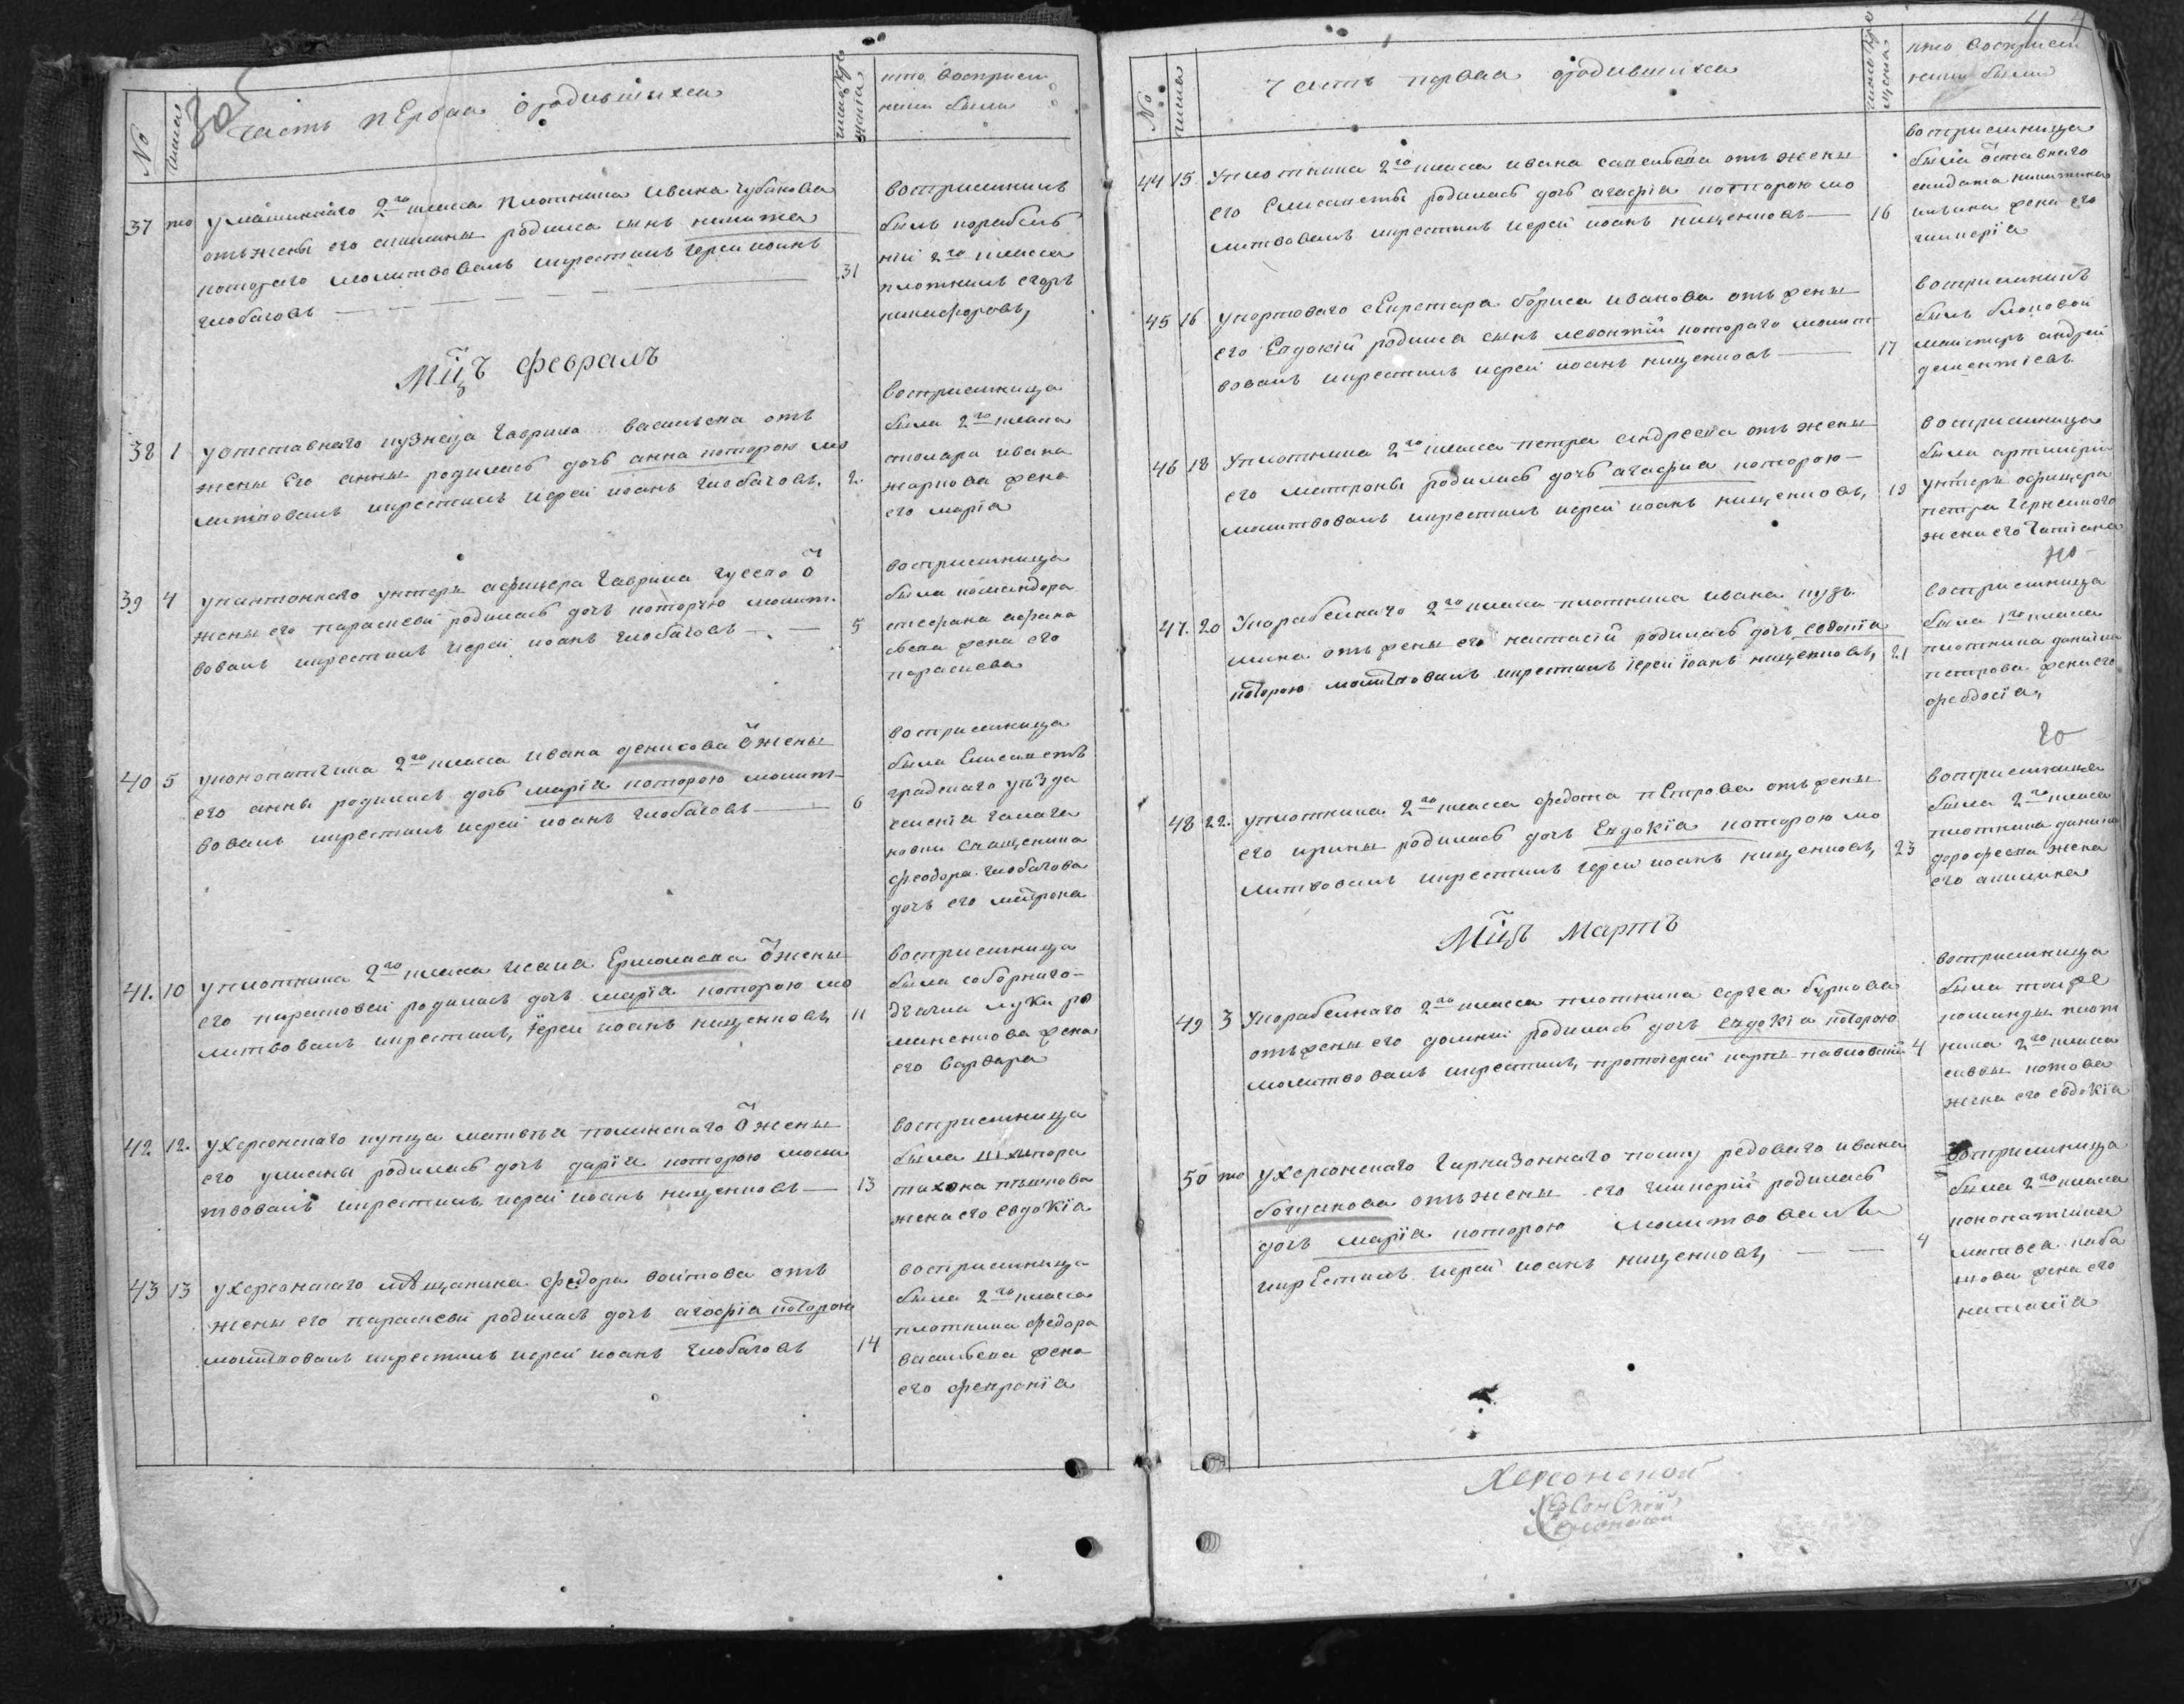 30
№
числа
часть пЕрваа ородившихса
кто восприем
ники были
37 то умашинаго 2го класса плотника ивана губанова
отъ жены его акилины родилса сынъ никита
котораго молитвовалъ икрестилъ іерей иоанъ
глобачовъ
31
восприемникъ
былъ корабель
ній 2го класса
плотникъ егоръ
никифоровъ,
Мцъ февраль
38 1 уотставнаго кузнеца гаврила васильева отъ
жены Его анны родилась дочь анна которою мо
литвовалъ икрестилъ иерей иоанъ глобачовъ,
2.
восприемница
была 2го класа
столара ивана
карпова жена
его марїа
39 4 унтеръ афицера гаврила гусева ѿ
жены его параскевы родилась дочь которую молит
вовалъ икрестилъ иерей иоанъ глобачовъ
5
восприемница
была командора
стефана
жена его
параскева
40 5 уконопатчика 2го класса ивана денисова ѿ жены
его анны родилась дочь марїа которою молит
вовалъ икрестилъ иерей иоанъ глобачовъ
6
восприемница
была Елисаветъ
градскаго уѣзда
священика
феодора глобачова
дочь его матрона
41. 10 уплотника 2го класса исаиа Ермолаева ѿ жены
его параскевеи родилась дочь марїа которою мо
литвовалъ икрестилъ, їерей иоанъ нищенковъ,
11
восприемница
была соборнаго
дьячка луки ро
маненкова жена
его варвара
42 12. ухерсонскаго купца матвѣя полинскаго ѿ жены
его улианы родилась дочь дарїа которою моли
твовалъ икрестилъ иерей иоанъ нищенковъ
13
восприемница
была шхипора
тихона
жена его евдокїа
43 13 ухерсонскаго мѣщанина федора воитова отъ
жены его параскевы родилась дочь агафїа которою
молитвовалъ икрестилъ иерей иоанъ глобачовъ
14
восприемница
была 2го класса
плотника федора
васильева жена
его февронїа
44
№
числа
Часть перваа ородившихса
кто восприем
ники были
44 15 Уплотника 2го класса ивана савельева отъ жены
его Елисаветы родилась дочь агафїа которою мо
литвовалъ икрестилъ иерей иоанъ нищенковъ
16
восприемница
была отставнаго
салдата
жена его
гликерїа
45 16 упортоваго сЕкретара бориса иванова отъ жены
его Евдокїй родилса сынъ левонтїй котораго молит
вовалъ икрестилъ иерей иоанъ нищенковъ
17
восприемникъ
былъ блоковой
мастеръ андрей
дементїевъ
46 18 Уплотника 2го класса петра андреева отъ жены
его матроны родилась дочь агафиа которою
молитвовалъ икрестилъ иерей иоанъ нищенковъ,
19
восприемница
была артилерїи
унтеръ офицера
петра
жена его татиана
47. 20 Укорабелнаго 2го класа плотника ивана кузь
мина отъ жены его настасїй родилась дочь евдокїа
которою молитвовалъ икрестилъ їерей їоанъ нищенковъ,
21
восприемница
была 1го класса
плотника данила
петрова жена его
феодосїа,
20
48 22. уплотника 2го класса федота пЕтрова отъ жены
его ирины родилась дочь Евдокїа которою мо
литвовалъ икрестилъ иерей иоанъ нищенковъ,
23
восприемница
была 2го класса
плотника данила
дорофеева жена
его акилина
Мцъ Мартъ
49 3 Укорабелнаго 2го класса плотника сергеа буркова
отъ жены его домнїи родилась дочь евдокїа которою
молитвовалъ икрестилъ, протоїерей карпъ павловский
4
восприемница
была той же
команды плот
ника 2го класса
савы котова
жена его евдокїа
50 то ухерсонскаго гарнизоннаго полку редоваго ивана
богданова отъ жены его гликерїй родилась
дочь марїа которою молитвовалъ
икрЕстилъ иерей иоанъ нищенковъ,
4
восприемница
была 2го класса
конопатчика
матвеа каба
нова жена его
наталїа
Херсонской
Херсонской
Херсонской